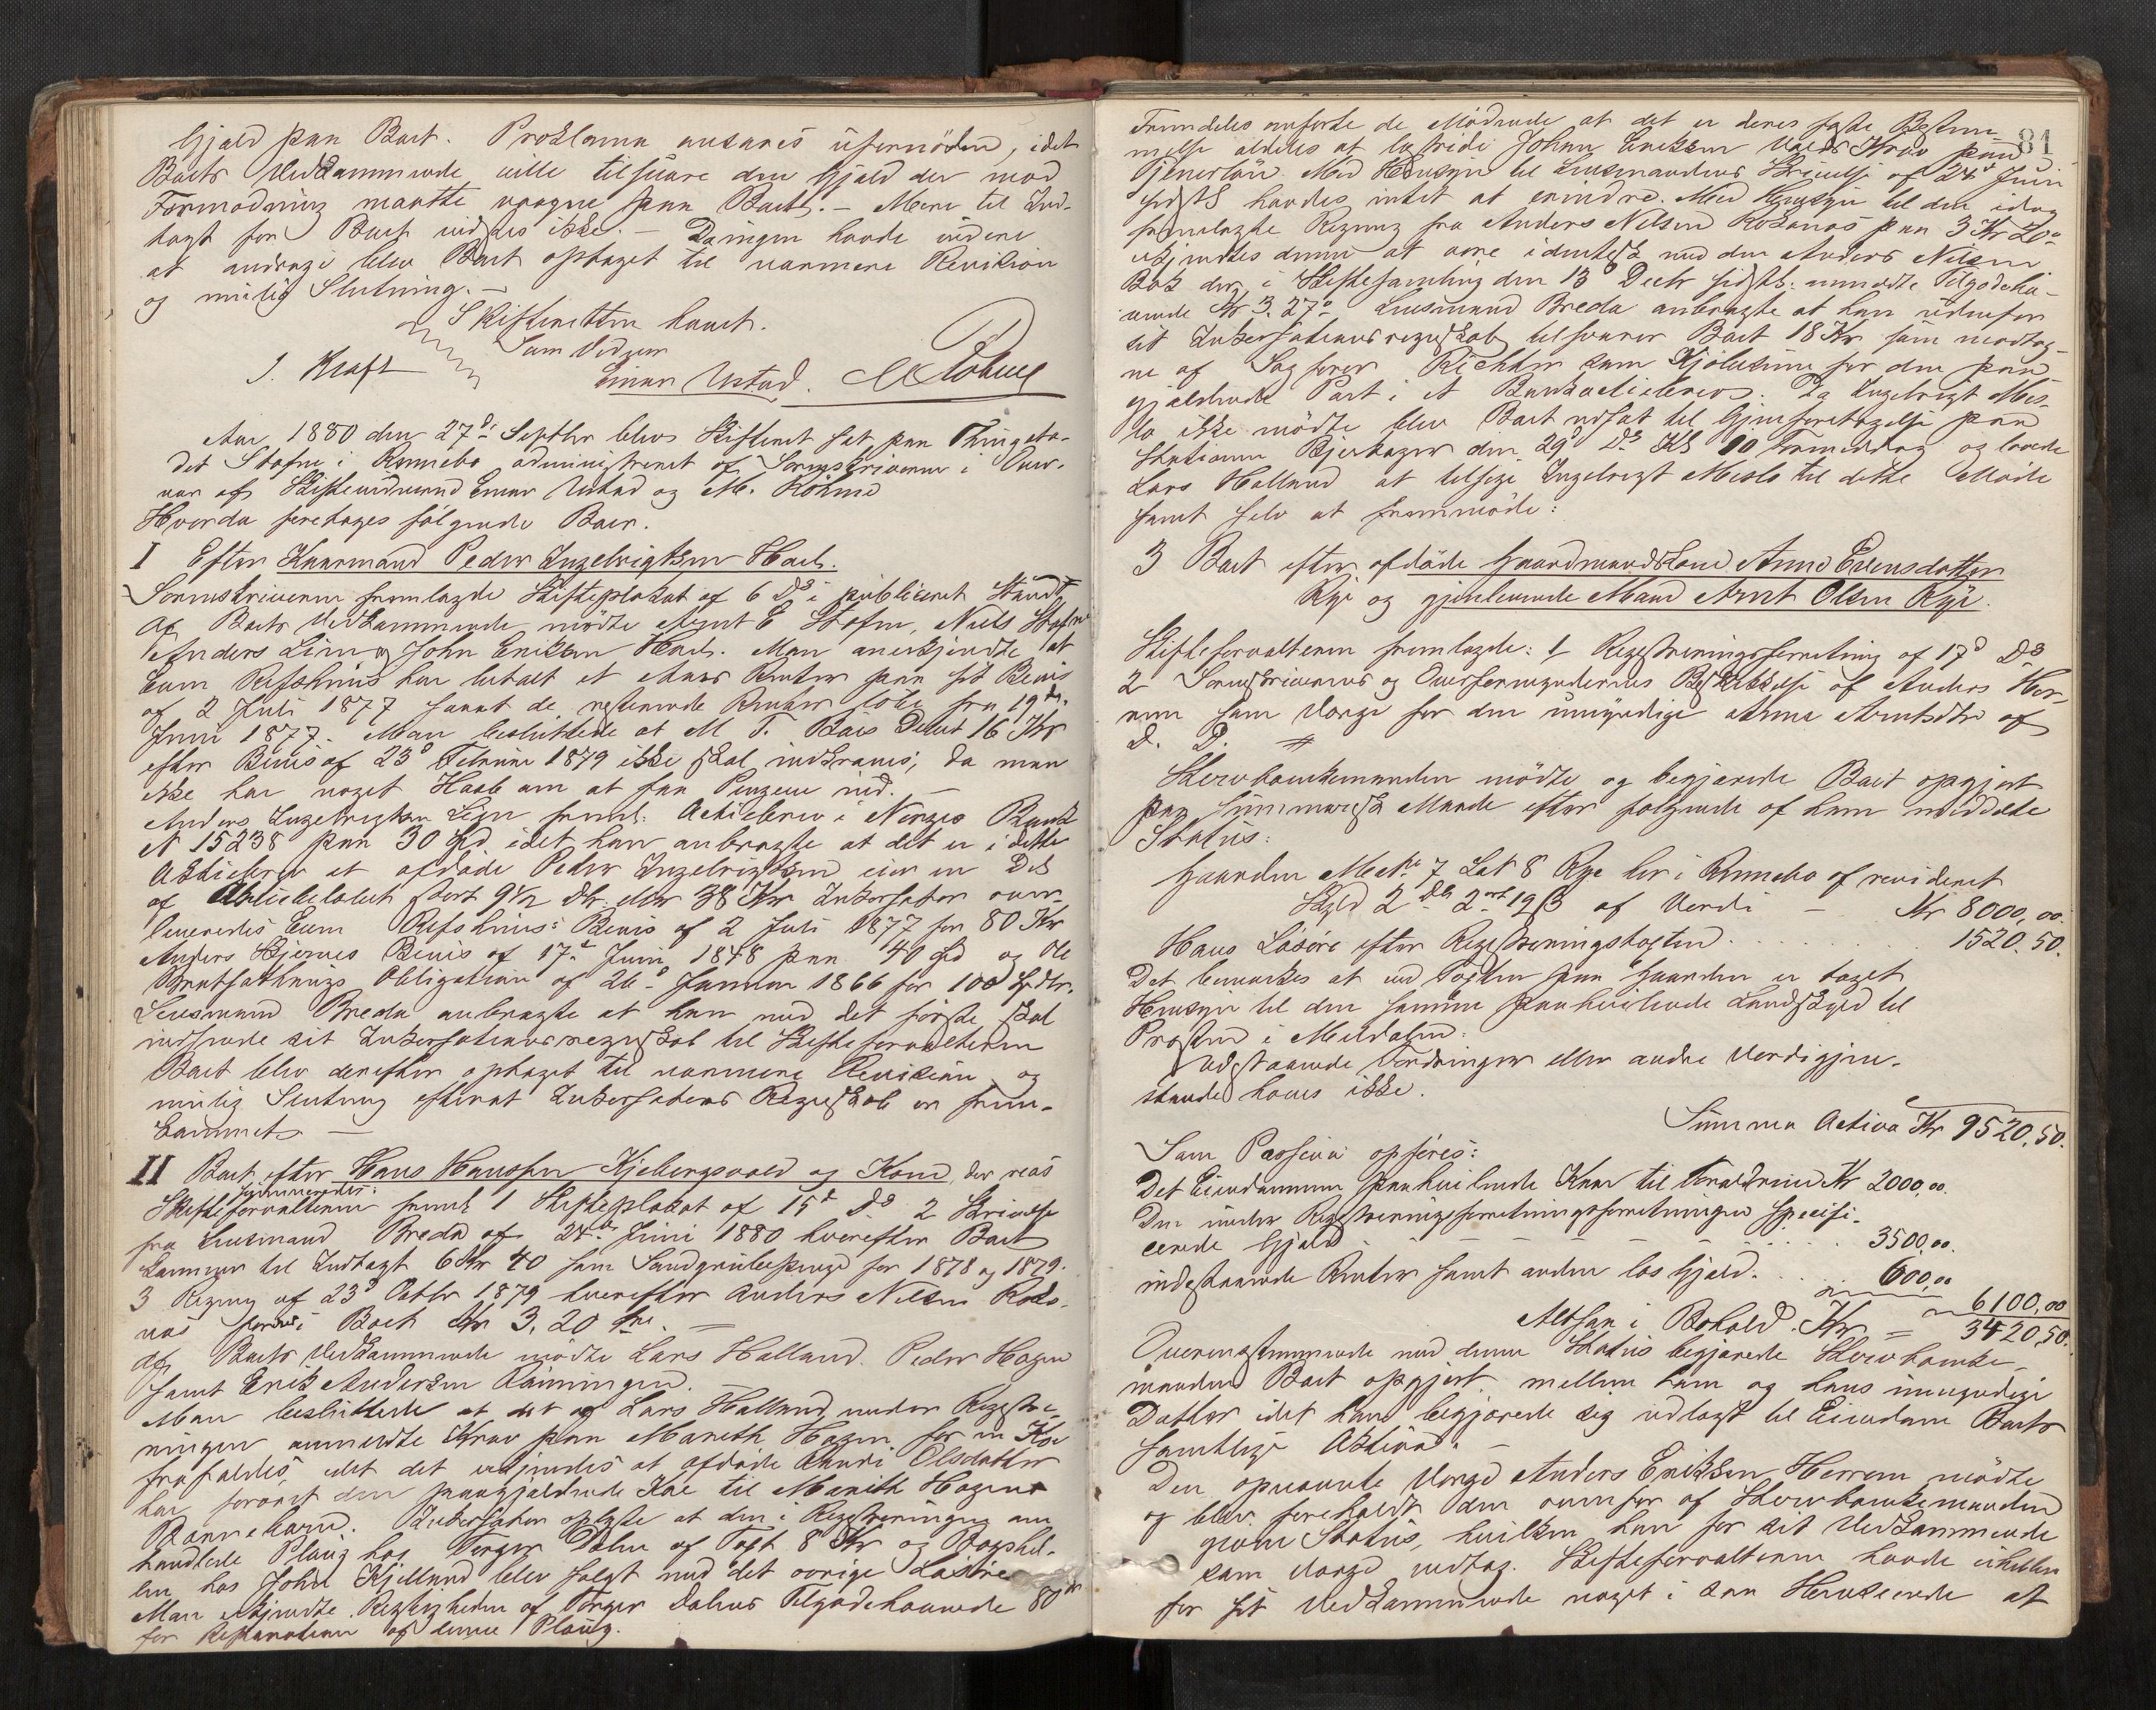 Gjæld paa Boet. Proklama ansaaes ufornöden, idet
Boets Vedkommende ville tilsvare den Gjæld der mod
Formodning maatte paa Boet. - Mere til Ind-
tægt for Boet vidstes ikke. - Da ingen havde videre
at andrage blev Boet optaget til nærmere Revision
og mulig Slutning. -
Skifteretten hævet.
Som Vidner
J. Kraft Einar Ustad. M Röhme
Aar 1880 den 27de Septbr blev Skifteret sat paa Thingste-
det Stafne i Rennebo administreret af Sorenskriveren i Over-
vær af Skiftevidnerne Einar Ustad og M. Röhme
Hvorda foretoges fölgende Boer.
I Efter Kaarmand Peder Ingebrigtsen Hæl.
Sorenskriveren fremlagde Skifteplakat af 6 Ds i publiceret Stand
Af Boets Vedkommende mödte Arnt E Stafne, Niels Stafne
Anders Lien og John Eriksen Hæl. Man anerkjendte at
Even Refshuus har betalt et Aars Renter paa sit Bevis
af 2 Juli 1877 samt de resterende Renter löbe fra 19de
Juni 1877. Man besluttede at M T. Debet 16 Kr
efter Bevis af 23d Februar 1879 ikke skal indkræves, da man
ikke har noget Haab om at faa Pengene ind. -
Anders Ingebrigtsen Lien freml: Actiebrev i Norges Bank
N 15238 paa 30 Spd idet han anbragte at det er i dette
Aktiebrev at afdöde Peder Ingebrigtsen eier en Del
af Aktiebelöbet stort 9½ Dlr. eller 38 Kr Inkassator over-
leveredes Even Refshuus: Bevis af 2 Juli 1877 for 80 Kr
Anders Bevis af 17de Juni 1848 paa 40 Spd og Ole
Obligation af 26d Januar 1866 for 100 Spdlr.
Lensmand Breda anbragte at han med det förste skal
indsende sit Inkassationsregnskab til Skifteforvalteren
Boet blev derefter optaget til nærmere Revision og
mulig Slutning efterat Inkassators Regnskab er frem-
kommet. -
II Boet efter Hans Hanssen Kjebergsvold og Kone, der
Skifteforvalteren freml 1 Skifteplakat af 15d Ds 2 Skrivelse
fra Lensmand Breda af 24de Juni 1880 hvorefter Boet
kommer til Indtægt 6 Kr 40 som for 1878 og 1879.
3 Regning af 23d Octbr 1879 hvorefter Anders Nilsen Roko-
næs fordres i Boet Kr 3,20 Öre. -
Af Boets Vedkommende mödte Lars Halland. Peder Hagen
samt Erik Andersen
Man besluttede at det af Lars Halland under Registre-
ningen anmeldte Krav paa Mareth Hagen for en Ko
frafaldes idet det at afdöde Olsdatter
har foræret den paagjældende Ko til Marith Hagens
Börnebarn. Inkassator oplyste at den i Registreringen om-
handlede Ploug hos Torger Dalen af 8 Kr og
len hos John Kjelland blev solgt med det övrige Lösöre
Man erkjendte Rigtigheden af Torger Dalens Tilgodehavende 80 öre
for Reparation af denne Ploug.
81
Fremdeles anförte de Mödende at det er deres faste Bestem-
melse aldeles at bestride Johan Eriksen Krav paa
Tjenerlön. Med Hensyn til Lensmandens Skrivelse af 24d Juni
sidstl havdes intet at erindre. Med Hensyn til den idag
fremlagte Regning fra Anders Nilsen Rokonæs paa 3 Kr 20 ö
erkjendtes denne at være identisk med den Anders Nilsen
Bak der i Skiftesamling den 13d Decbr sidstl. anmeldte Tilgodeha-
vende Kr 3.27 ö. Lensmand Breda anbragte at han udenfor
sit Inkassationsregnskab tilsvarer Boet 18 Kr som modtag-
ne af Sagförer Richter som Kjöbesum for den paa-
gjældende Part i et Bankactiebrev. Da Ingebrigt Mes-
lo ikke mödte blev Boet udsat til Gjenforetagelse paa
Stationen Bjerkager den 29d Ds Kl 10 Formiddag og lovede
Lars Halland at tilsige Ingebrigt Meslo til dette Möde
samt selv at fremmöde:
3 Boet efter afdöde Gaardmandskone Anne Evensdatter
Rye og gjenlevende Mand Arnt Olsen Rye.
Skifteforvalteren fremlagde: 1 Registreringsforretning af 17d Ds
2 Sorenskriverens og Overformyndernes Beskikkelse af Anders Her-
rem som Værge for den umyndige Anna Arntsdtr af
d. D.
Stervboenkemanden mödte og begjærede Boet opgjort
paa summarisk Maade efter fölgende af ham meddelte
Status:
Gaarden Matr No 7 Löb 8 Rye her i Rennebo af revideret
Skyld 2 Dlr 2 ort 19 ß af Værdi - Kr 8000,00.
Hans Lösöre efter Registreringstaxten . . . . . 1520.50.
Det bemærkes at ved Taxten paa Gaarden er taget
Hensyn til den samme paahvilende Landskyld til
Præsten i Meldalen:
Udestaaende Fordringer eller andre Værdigjen-
stande haves ikke.
Summa Activa Kr 9520,50.
Som Passiva opföres:
Det Eiendommen paahvilende Kaar til Forældrene Kr 2000,00
Den under Registreringsforretningsforretningen specifi-
cerede Gjæld . . . . . . 3500,00.
indestaaende Renter samt anden lös Gjæld. . . . 600,00
6100,00
Altsaa i Behold. Kr = 3420,50.
Overensstemmende med denne Status begjærede Stervboenke-
manden Boet opgjort mellem ham og hans umyndige
Datter idet han begjærede sig udlagt til Eiendom Boets
samtlige Aktiva. -
Den opnævnte Værge Anders Eriksen Herrem mödte
og blev foreholdt den ovenfor af Stervboenkemanden
givne Status, hvilken han for sit Vedkommende
som Værge vedtog. Skifteforvalteren havde eiheller
for sit Vedkommende noget i saa Henseende at